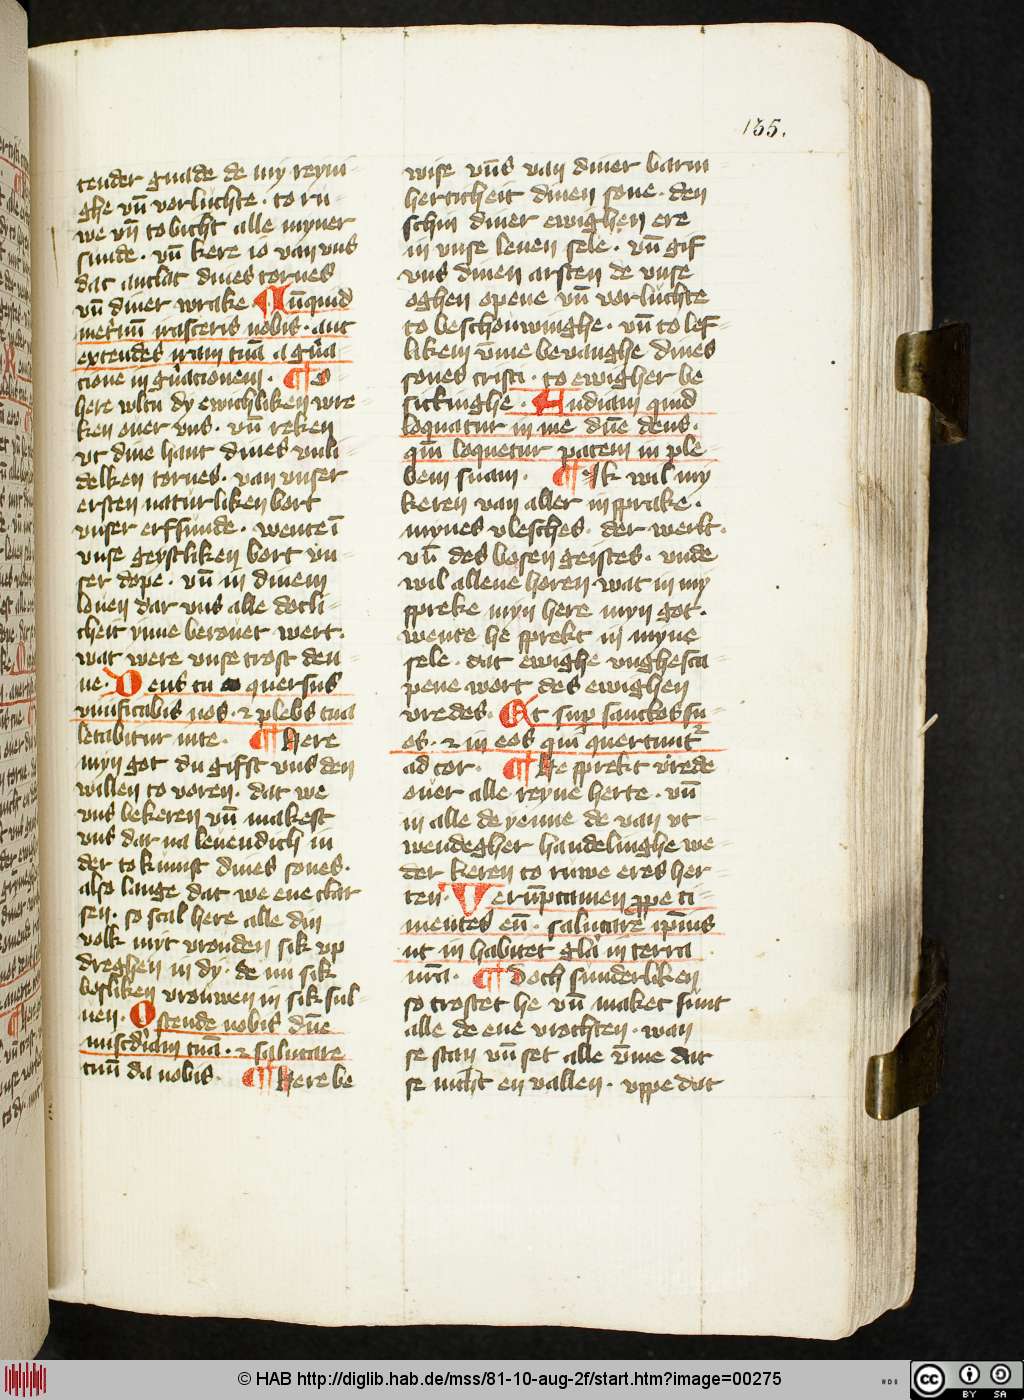 135.
tender gnade de my reyni-
ghe vn̄ vorluchte · to ru-
we vn̄ to bicht alle myner
sunde · vn̄ kere io van vns
dat antlat dines tornes
vn̄ diner wrake Nūquid
in eternū irasceris nobis · aut
extendes iram tuā a gn̄a
cione in gn̄acionem · ¶ O
here wltu dy ewichliken wre-
ken ouer vns · vn̄ reken
vt dine hant dines vnli-
delken tornes · van vnser
ersten naturliken bort
vnser erfsunde · wente ī
vnse geystliken bort vn-
ser dope · vn̄ in dinem
louen dar vns alle dotli-
cheit ynne berouet wert ·
wat were vnse trost den-
ne · Deus tu quersus
viuificabis nos · et plebs tua
letabitur in te · ¶ Here
myn got du gifst vns den
willen to voren · dat we
vns bekeren vn̄ makest
vns dar na leuendich in
der tokumst dines sones ·
also lange dat we ene clar
sen · so scal here alle din
volk mit vrouden sik vp
dreghen in dy · de nu sik
bosliken vrouwen in sik sul-
uen · Ostende nobis dn̄e
misc̄diam tuā · et salutare
tuū da nobis · ¶ Here be
wise vn̄s van diner barm
herticheit dinen sone · den
schin diner ewighen ere
in vnse leuen sele · vn̄ gif
vns dinen arsten de vnse
oghen opene vn̄ vorluchte
to beschouwinghe · vn̄ to lef-
likem vm̄e bevanghe dines
sones cristi · to ewigher be
sittinghe · Audiam quid
loquatur in me dn̄s deus ·
qm̄ loquetur pacem in ple
bem suam · ¶ Ik wil my
keren van aller insprake ·
mynes vlesches · der werlt ·
vn̄ des bosen geistes · vnde
wil allene horen wat in my
spreke myn here myn got ·
wente he sprekt in myne
sele · dat ewighe vnghesca-
pene wort des ewighen
vredes · Et sup sanctos su-
os · et in eos qui quertunt᷑
ad cor · ¶ He sprekt vrede
ouer alle reyne herte · vn̄
in alle de yenne de van vt-
wendegher handelinghe we-
der keren to ruwe eres her-
ten · Verūptamen ꝓpe ti-
mentes eū · salutare ipīus
ut in habitet glā in terra
nrā · ¶ Doch sunderliken
so trostet he vn̄ maket sunt
alle de ene vrochten · wan
se stan vn̄ set alle vm̄e dat
se nicht en vallen · vppe dat
© HAB http://diglib.hab.de/mss/81-10-aug-2f/start.htm?image=00275
HAB
cc BY SA